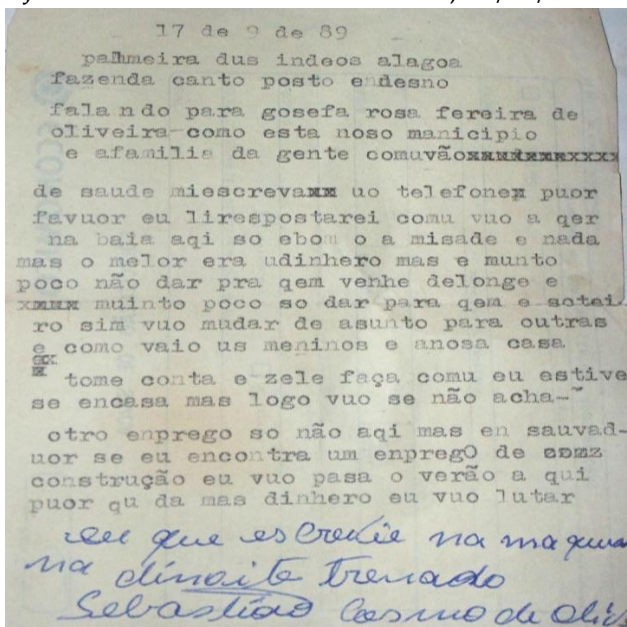 17 de 9 de 89
palhmeira dus indeos alagoa
fazenda canto posto endesno
falando para gosefa rosa fereira de
oliveira como esta noso manicipio
e afamilia da gente comuvãoxxxxxxxxxxxxx
de saude miescrevaxx uo telefonex puor
favuor eu lirespostarei comu vuo a qer
na baia aqi so ebom o a misade e nada
mas o melor era udinhero mas e munto
poco não dar pra qem venhe delonge e
xxxx muinto poco so dar para qem e sotei
ro sim vuo mudar de asunto para outras
e como vaio us meninos e anosa casa
tome conta e zele faça comu eu estive
se encasa mas logo vuo se não acha-~
otro enprego so não aqi mas en sauvad-
uor se eu encontra um enpregO de
construção eu vuo pasa o verão a qui
puor qu da mas dinhero eu vuo lutar
eu que escrevie na maquina
na dinoite trenado
Sebastião Cosmo de Oliv